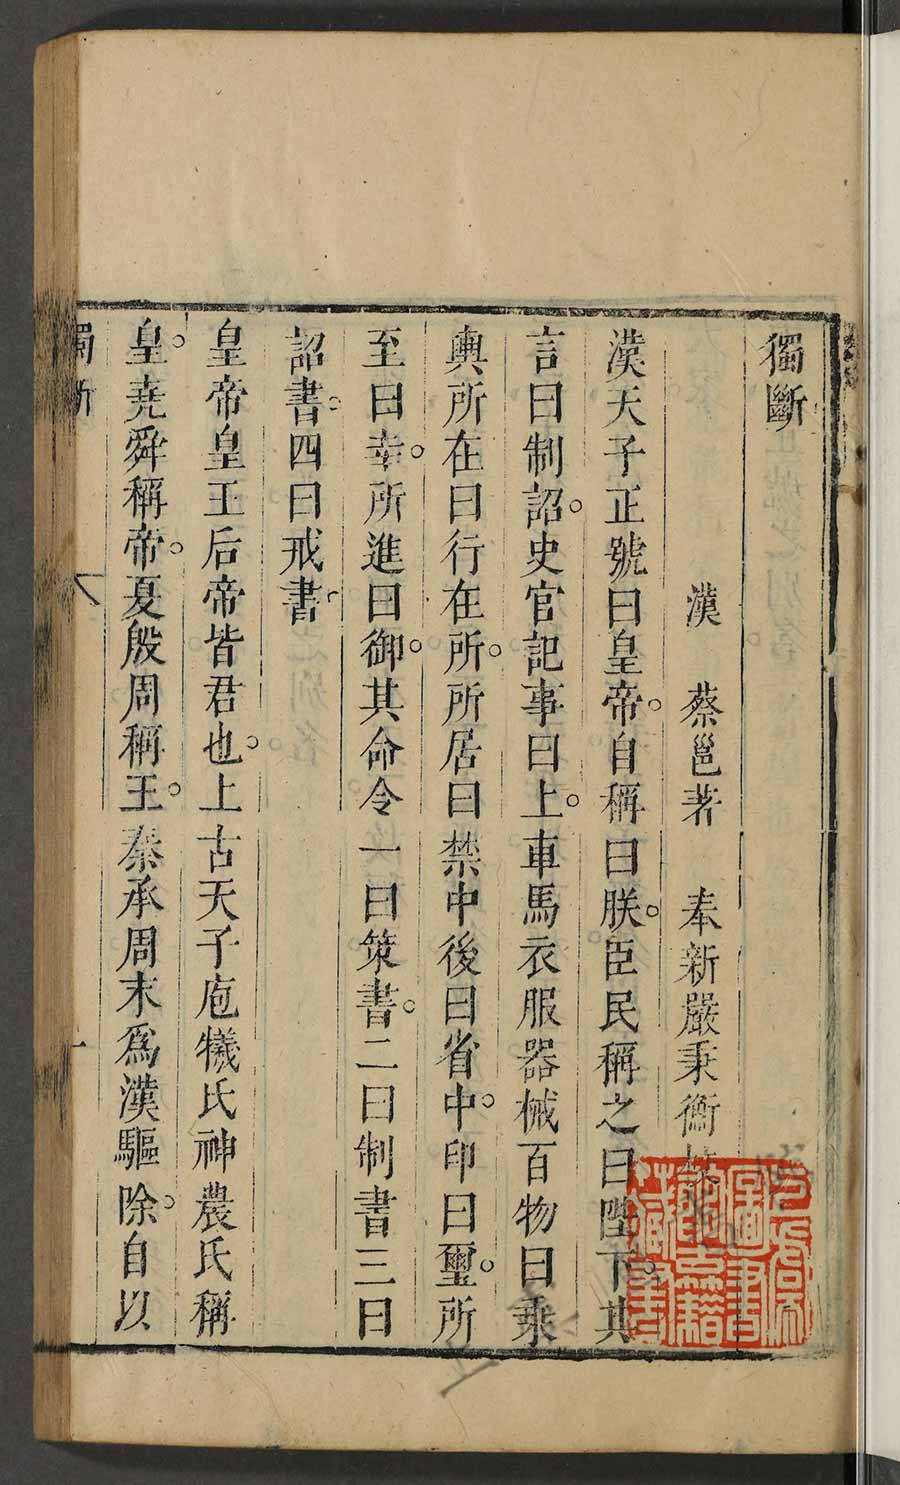 獨斷
漢 蔡邕著 奉新嚴秉衡
漢天子正號曰皇帝。自稱曰朕。臣民稱之曰陛下。其
言曰制詔。史官記事曰上。車馬衣服器械百物曰乘
輿所在曰行在所。所居曰禁中後曰省中。印曰璽。所
至曰幸。所進曰御。其命令一曰策書。二曰制書三曰
詔書。四曰戒書
皇帝皇王后帝皆君也。上古天子庖犧氏神農氏稱
皇。堯舜稱帝。夏殷周稱王。秦承周末為漢驅除。自以
獨斷 一